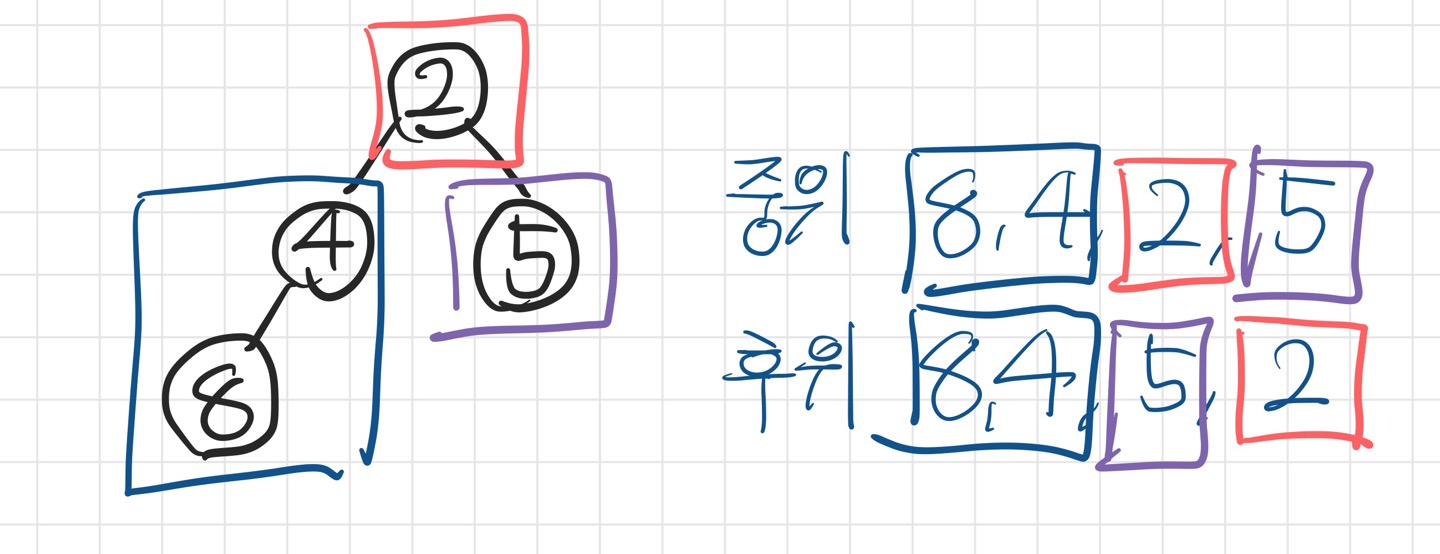 2
4
5
8
중위 8, 4, 2, 5
후위 8, 4, 5, 2